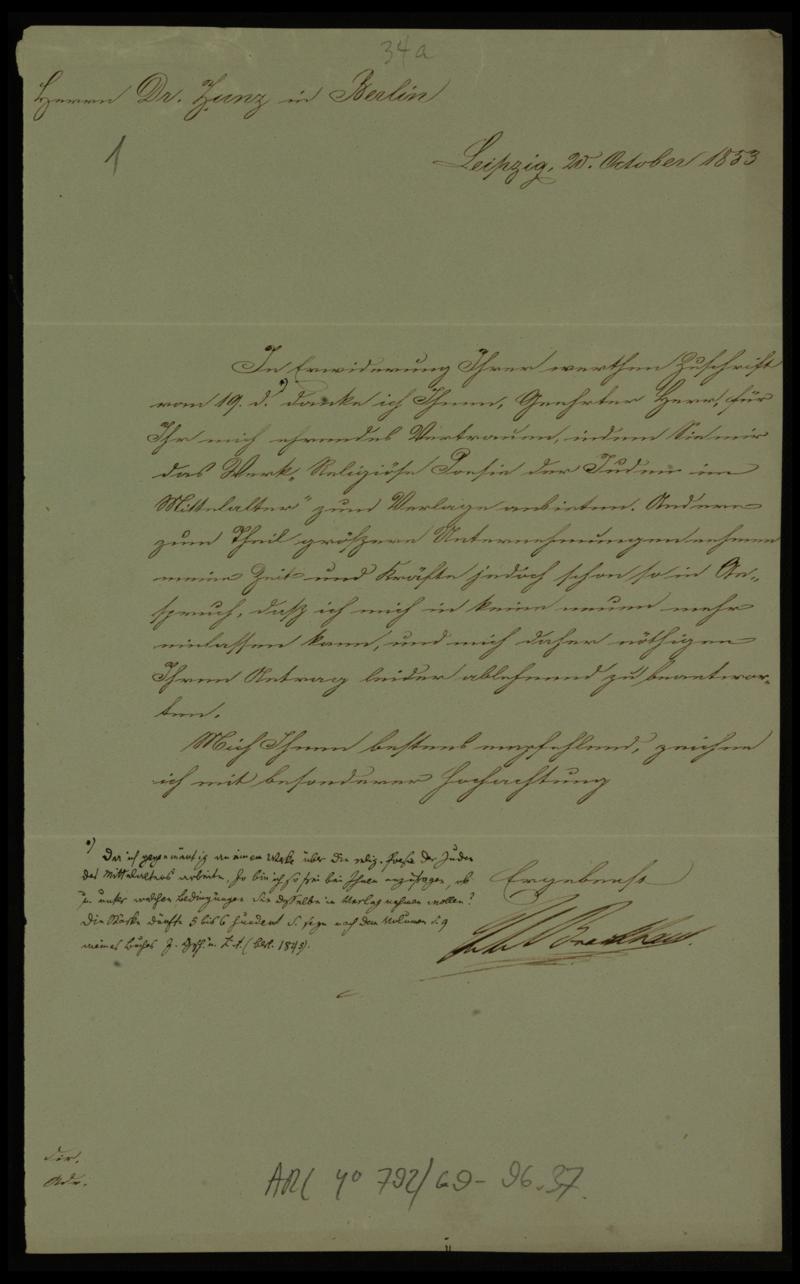 34a
Herrn Dr. Zunz in Berlin
1
Leipzig, 20. October 1853
In Erwiderung Ihrer werthen Zuschrift
vom 19. d. danke ich Ihnen, Geehrter Herr, für
Ihr mich ehrendes Vertrauen, indem Sie mir
das Werk „Religiöse Poesie der Juden im
Mittelalter" zum Verlage anbieten. Andere
zum Theil größere Unternehmungen nehmen
meine Zeit und Kräfte jedoch schon so in An-
spruch, daß ich mich in keine neuen mehr
einlassen kann, und mich daher nöthigen
Ihren Antrag leider ablehnend zu beantwor-
ten.
Mich Ihnen bestens empfehlend, zeichne
ich mit besonderer Hochachtung
Ergebenst
Brockhaus.
*) Da ich gegenwärtig an einem Werke über die relig. Poesie der Juden
des Mittelalters arbeite, so bin ich so frei bei Ihnen anzufragen, ob
u. unter welchen Bedingungen Sie dasselbe in Verlag nehmen wollen?
Die Stärke dürfte 5 bis 6 hundert S. seyn nach dem Volumen
meines Buches z. Gesch. u. Lit. (Berl. 1845).
Adr.
ARC 4° 792/G9-96.37.